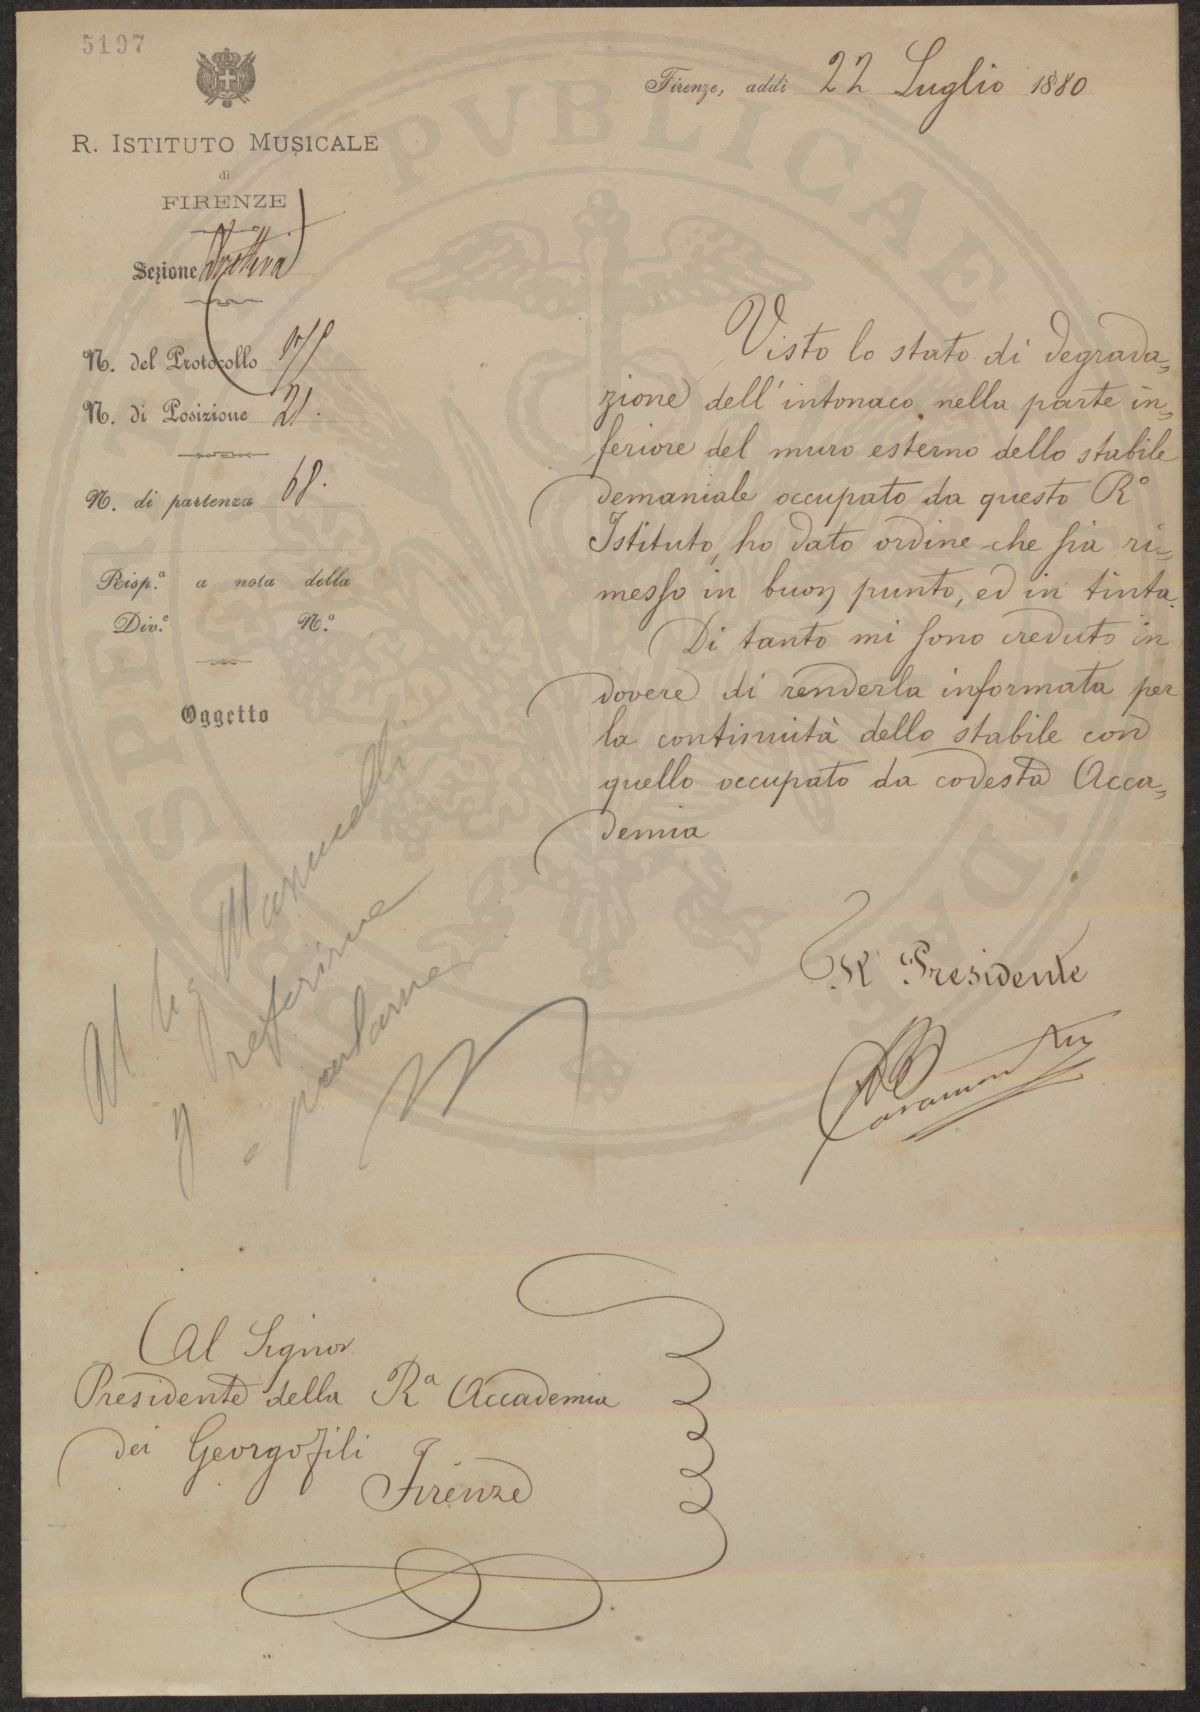 5197
R. ISTITUTO MUSICALE
di
FIRENZE
Sezione Direttiva
N. del Protocollo
N. di Posizione 21.
N. di partenza 68.
Risp.a a nota della
Div.e N.o
Oggetto
Firenze, addì 22 Luglio 1880
Visto lo stato di degrada„
zione dell'intonaco nella parte in„
feriore del muro esterno dello stabile
demaniale occupato da questo R.o
Istituto, ho dato ordine che sia ri„
messo in buon punto, ed in tinta.
Di tanto mi sono creduto in
dovere di renderla informata per
la continuità dello stabile con
quello occupato da codesta Acca„
demia
Il Presidente
Al Sig Manucelli
referirne
e parlarne
Al Signor
Presidente della R.a Accademia
dei Georgofili
Firenze